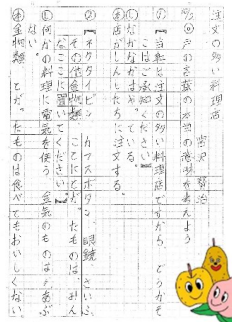 注文の多い料理店
宮沢 賢治
戸の言葉の本当の意味を考えよう
「当軒は注文の多い料理店ですから、どうかそ
こはご承知ください。」
店がしんしたちに注文する。
「ネクタイピン、カフスボタン、眼鏡、さいふ、
その他金物類、
ことにとがったものは、みん
なここに置いてください。」
何かの料理に電気を使う
金気のものはあぶ
ない。
金物類
とがったものは食べてもおいしくない